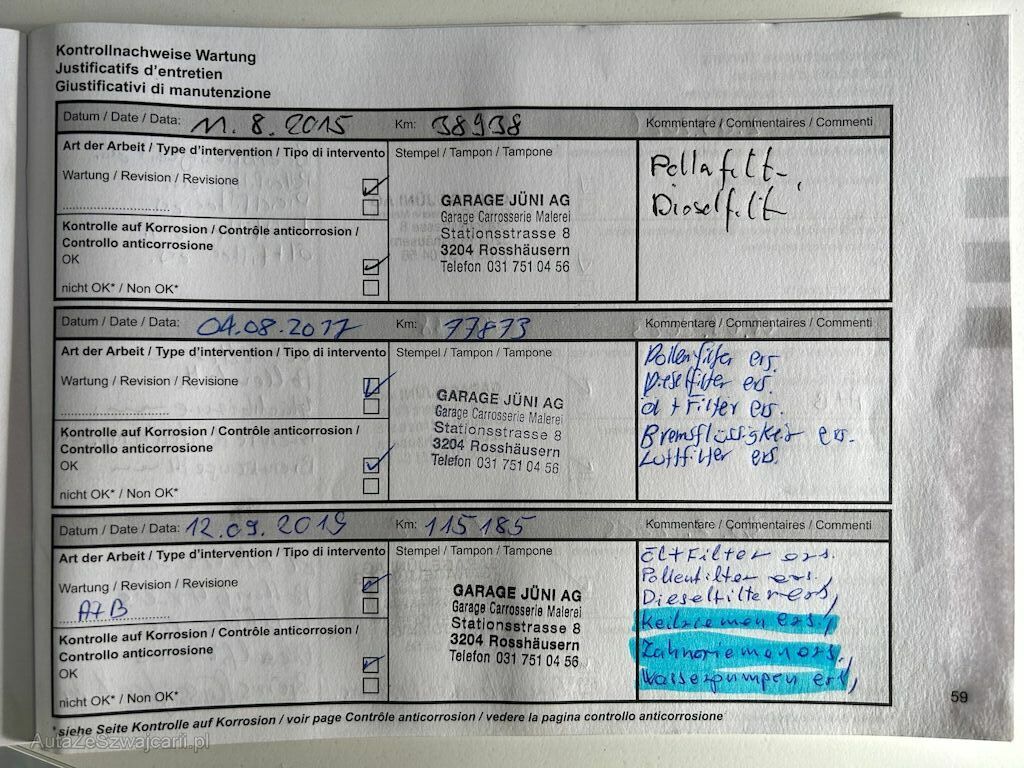 Kontrollnachweise Wartung
Justificatifs d'entretien
Giustificativi di manutenzione
Datum / Date / Data: 11. 8. 2015 Km: 38938 Kommentare / Commentaires / Commenti
Art der Arbeit / Type d'intervention / Tipo di intervento Stempel / Tampon / Tampone
Wartung / Revision / Revisione
Pollafilt.
Dieselfilt
GARAGE JÜNI AG
Garage Carrosserie Malerei
Stationsstrasse 8
3204 Rosshäusern
Telefon 031 751 04 56
Kontrolle auf Korrosion / Contrôle anticorrosion /
Controllo anticorrosione
OK
nicht OK* / Non OK*
Datum / Date / Data: 04.08.2017 Km: 77873 Kommentare / Commentaires / Commenti
Art der Arbeit / Type d'intervention / Tipo di intervento Stempel / Tampon / Tampone
Wartung / Revision / Revisione
Pollenfilter ers.
Dieselfilter ers.
Öl + Filter ers.
Bremsflüssigkeit ers.
Luftfilter ers.
GARAGE JÜNI AG
Garage Carrosserie Malerei
Stationsstrasse 8
3204 Rosshäusern
Telefon 031 751 04 56
Kontrolle auf Korrosion / Contrôle anticorrosion /
Controllo anticorrosione
OK
nicht OK* / Non OK*
Datum / Date / Data: 12.09.2019 Km: 115185 Kommentare / Commentaires / Commenti
Art der Arbeit / Type d'intervention / Tipo di intervento Stempel / Tampon / Tampone
Wartung / Revision / Revisione
A+B
Öl+Filter ers.
Pollenfilter ers.,
Dieselfilter ers,
Keilriemen ers.,
Zahnriemen ers.,
Wasserpumpen ers,
GARAGE JÜNI AG
Garage Carrosserie Malerei
Stationsstrasse 8
3204 Rosshäusern
Telefon 031 751 04 56
Kontrolle auf Korrosion / Contrôle anticorrosion /
Controllo anticorrosione
OK
nicht OK* / Non OK*
*siehe Seite Kontrolle auf Korrosion / voir page Contrôle anticorrosion / vedere la pagina controllo anticorrosione
59
AutaZeSzwajcarii.pl